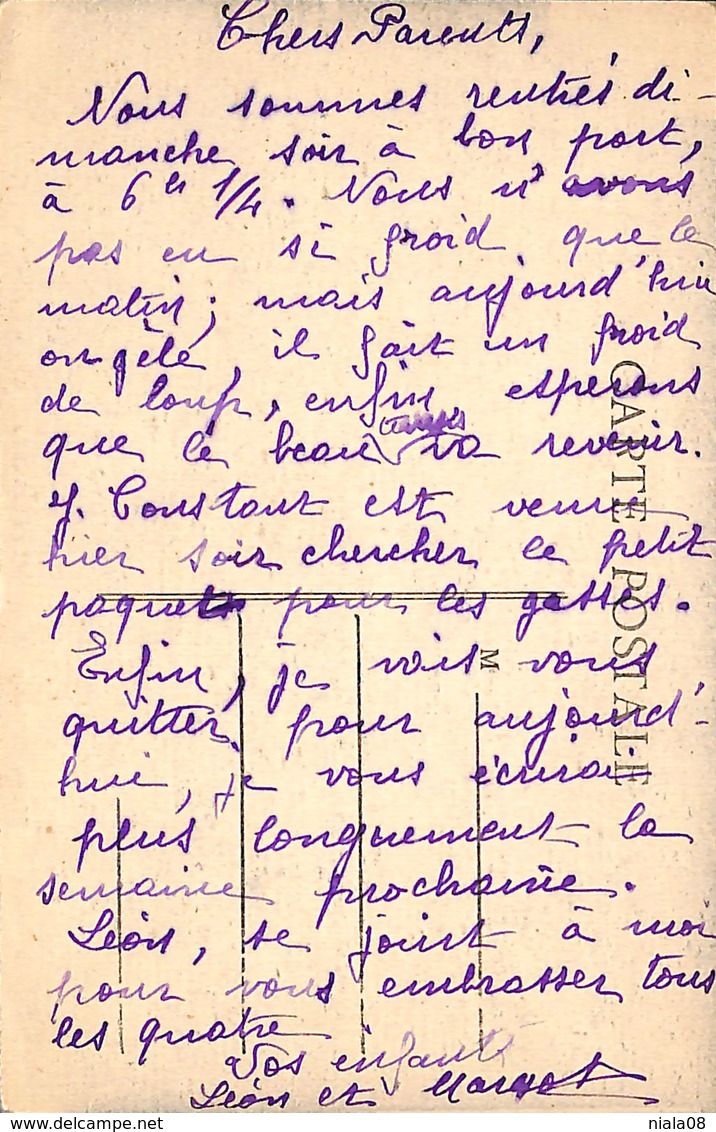 Chers Parents,
Nous sommes rentrés di-
manche soir à bon port,
à 6 hs 1/4. Nous n'avons
pas eu si froid que le
matin; mais aujourd'hui
on gèle, il fait un froid
de loup, enfin esperons
que le beau temps va revenir.
Y. Constant est venu
hier soir chercher le petit
paquet pour les gosses.
Enfin, je vais vous
quitter pour aujourd'-
hui, je vous écrirai
plus longuement la
semaine prochaine.
Léon, se joint à moi
pour vous embrasser tous
les quatre
Vos enfants
Léon et Margot
CARTE POSTALE
M
niala08